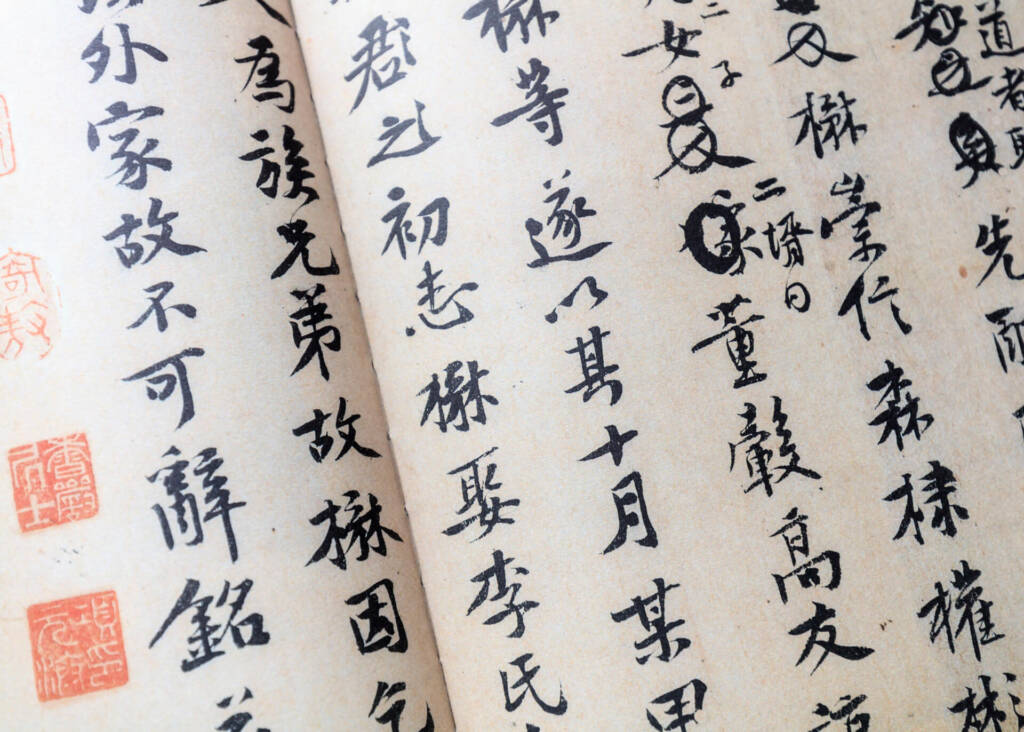 道者
先
楙崇信森棣權彬
女二子
二壻曰
董轂高友
楙等遂以其十月某甲
君之初志楙娶李氏
為族兄弟故楙因乞
外家故不可辭銘